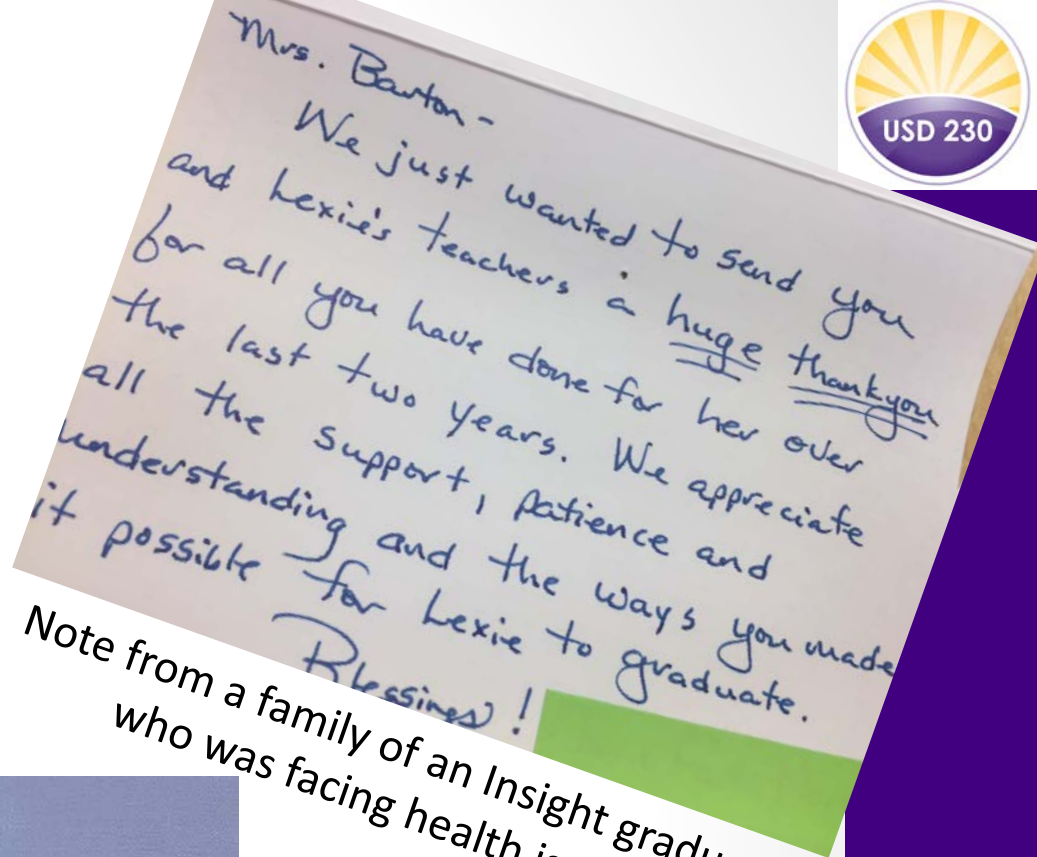 USD 230
Mrs. Barton-
We just wanted to send you
and Lexie's teachers a huge thankyou
for all you have done for her over
the last two years. We appreciate
all the support, patience and
understanding and the ways you made
it possible for Lexie to graduate.
Blessings!
Note from a family of an Insight
who was facing health